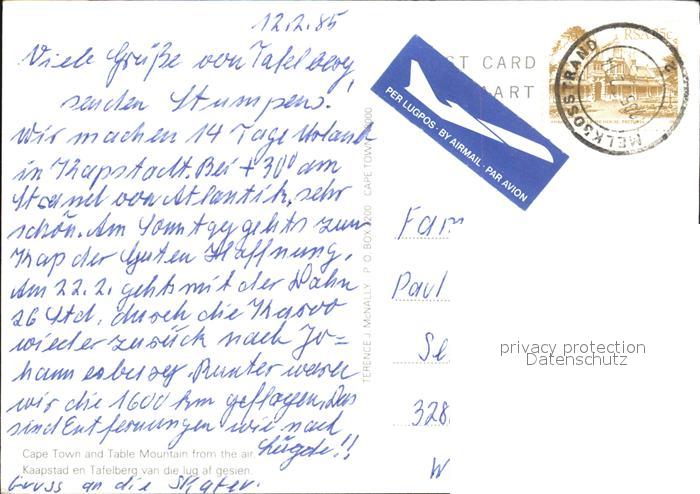 12.2.85
Viele Grüße von Tafelberg
senden Stumpens!
Wir machen 14 Tage Urlaub
in Kapstadt. Bei +30° am
Strand von Atlantik, sehr
schön. Am Sonntag gehts zum
Kap der Guten Hoffnung.
Am 22.2. gehts mit der Bahn
26 Std. durch die Karoo
wieder zurück nach Jo=
hannesberg. Runter waren
wir die 1600 km geflogen. Das
sind Entfernungen wie nach
Lügde!!
Gruss an die Skater.
Cape Town and Table Mountain from the air.
Kaapstad en Tafelberg van die lug af gesien.
TERENCE J. McNALLY P O BOX CAPE TOWN
ST CARD
AART
PER LUGPOS · BY AIRMAIL · PAR AVION
RSA
MELKBOSSTRAND
Fam
Paul
Se
328
W
privacy protection
Datenschutz